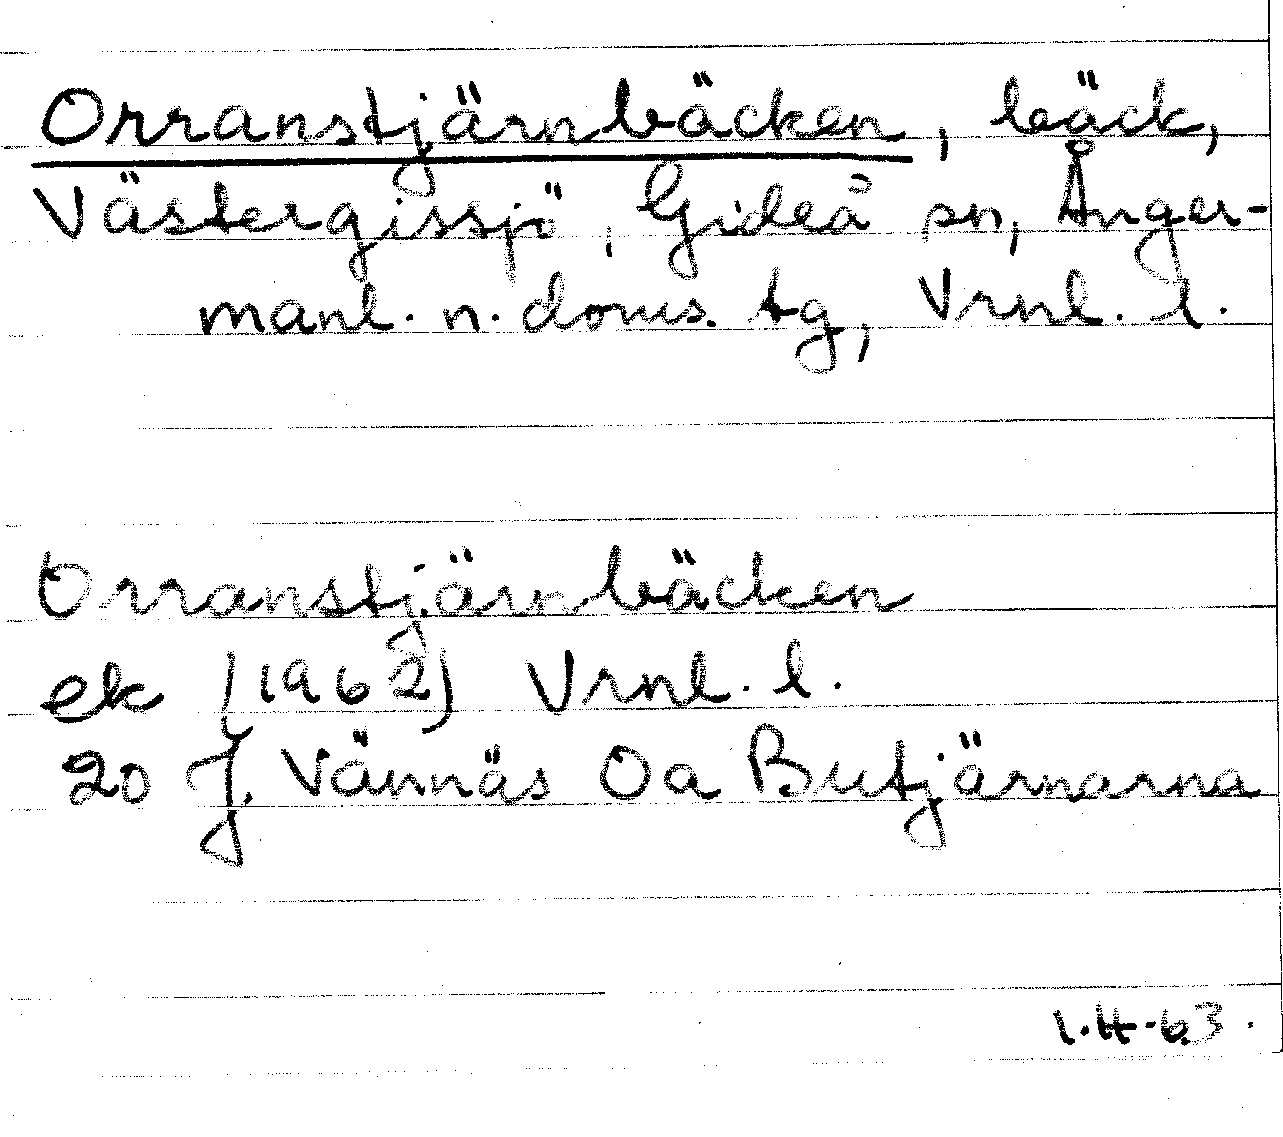 Orranstjärnbäcken, bäck,
Västergissjö, Gideå sn, Ånger-
manl. n. doms. tg, Vrnl. l.
Orranstjärnbäcken
ek (1962) Vrnl. l.
20 J. Vännäs Oa Butjärnarna
1.4.63.